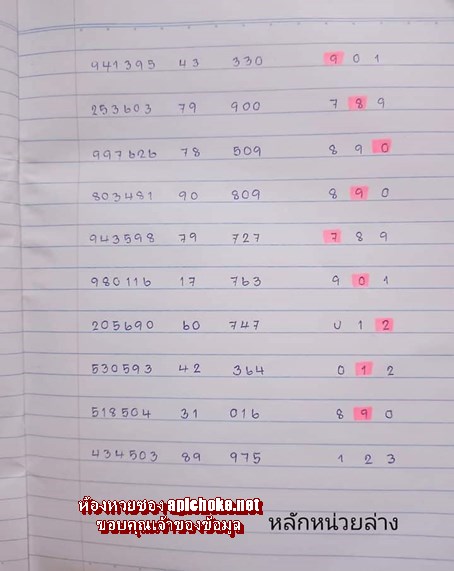 941395 43 330 9 0 1
253603 79 900 7 8 9
997626 78 509 8 9 0
803481 90 809 8 9 0
943598 79 727 7 8 9
980116 17 763 9 0 1
205690 60 747 0 1 2
530593 42 364 0 1 2
518504 31 016 8 9 0
434503 89 975 1 2 3
ห้องหวยซอง apichoke.net
ขอบคุณเจ้าของข้อมูล
หลักหน่วยล่าง